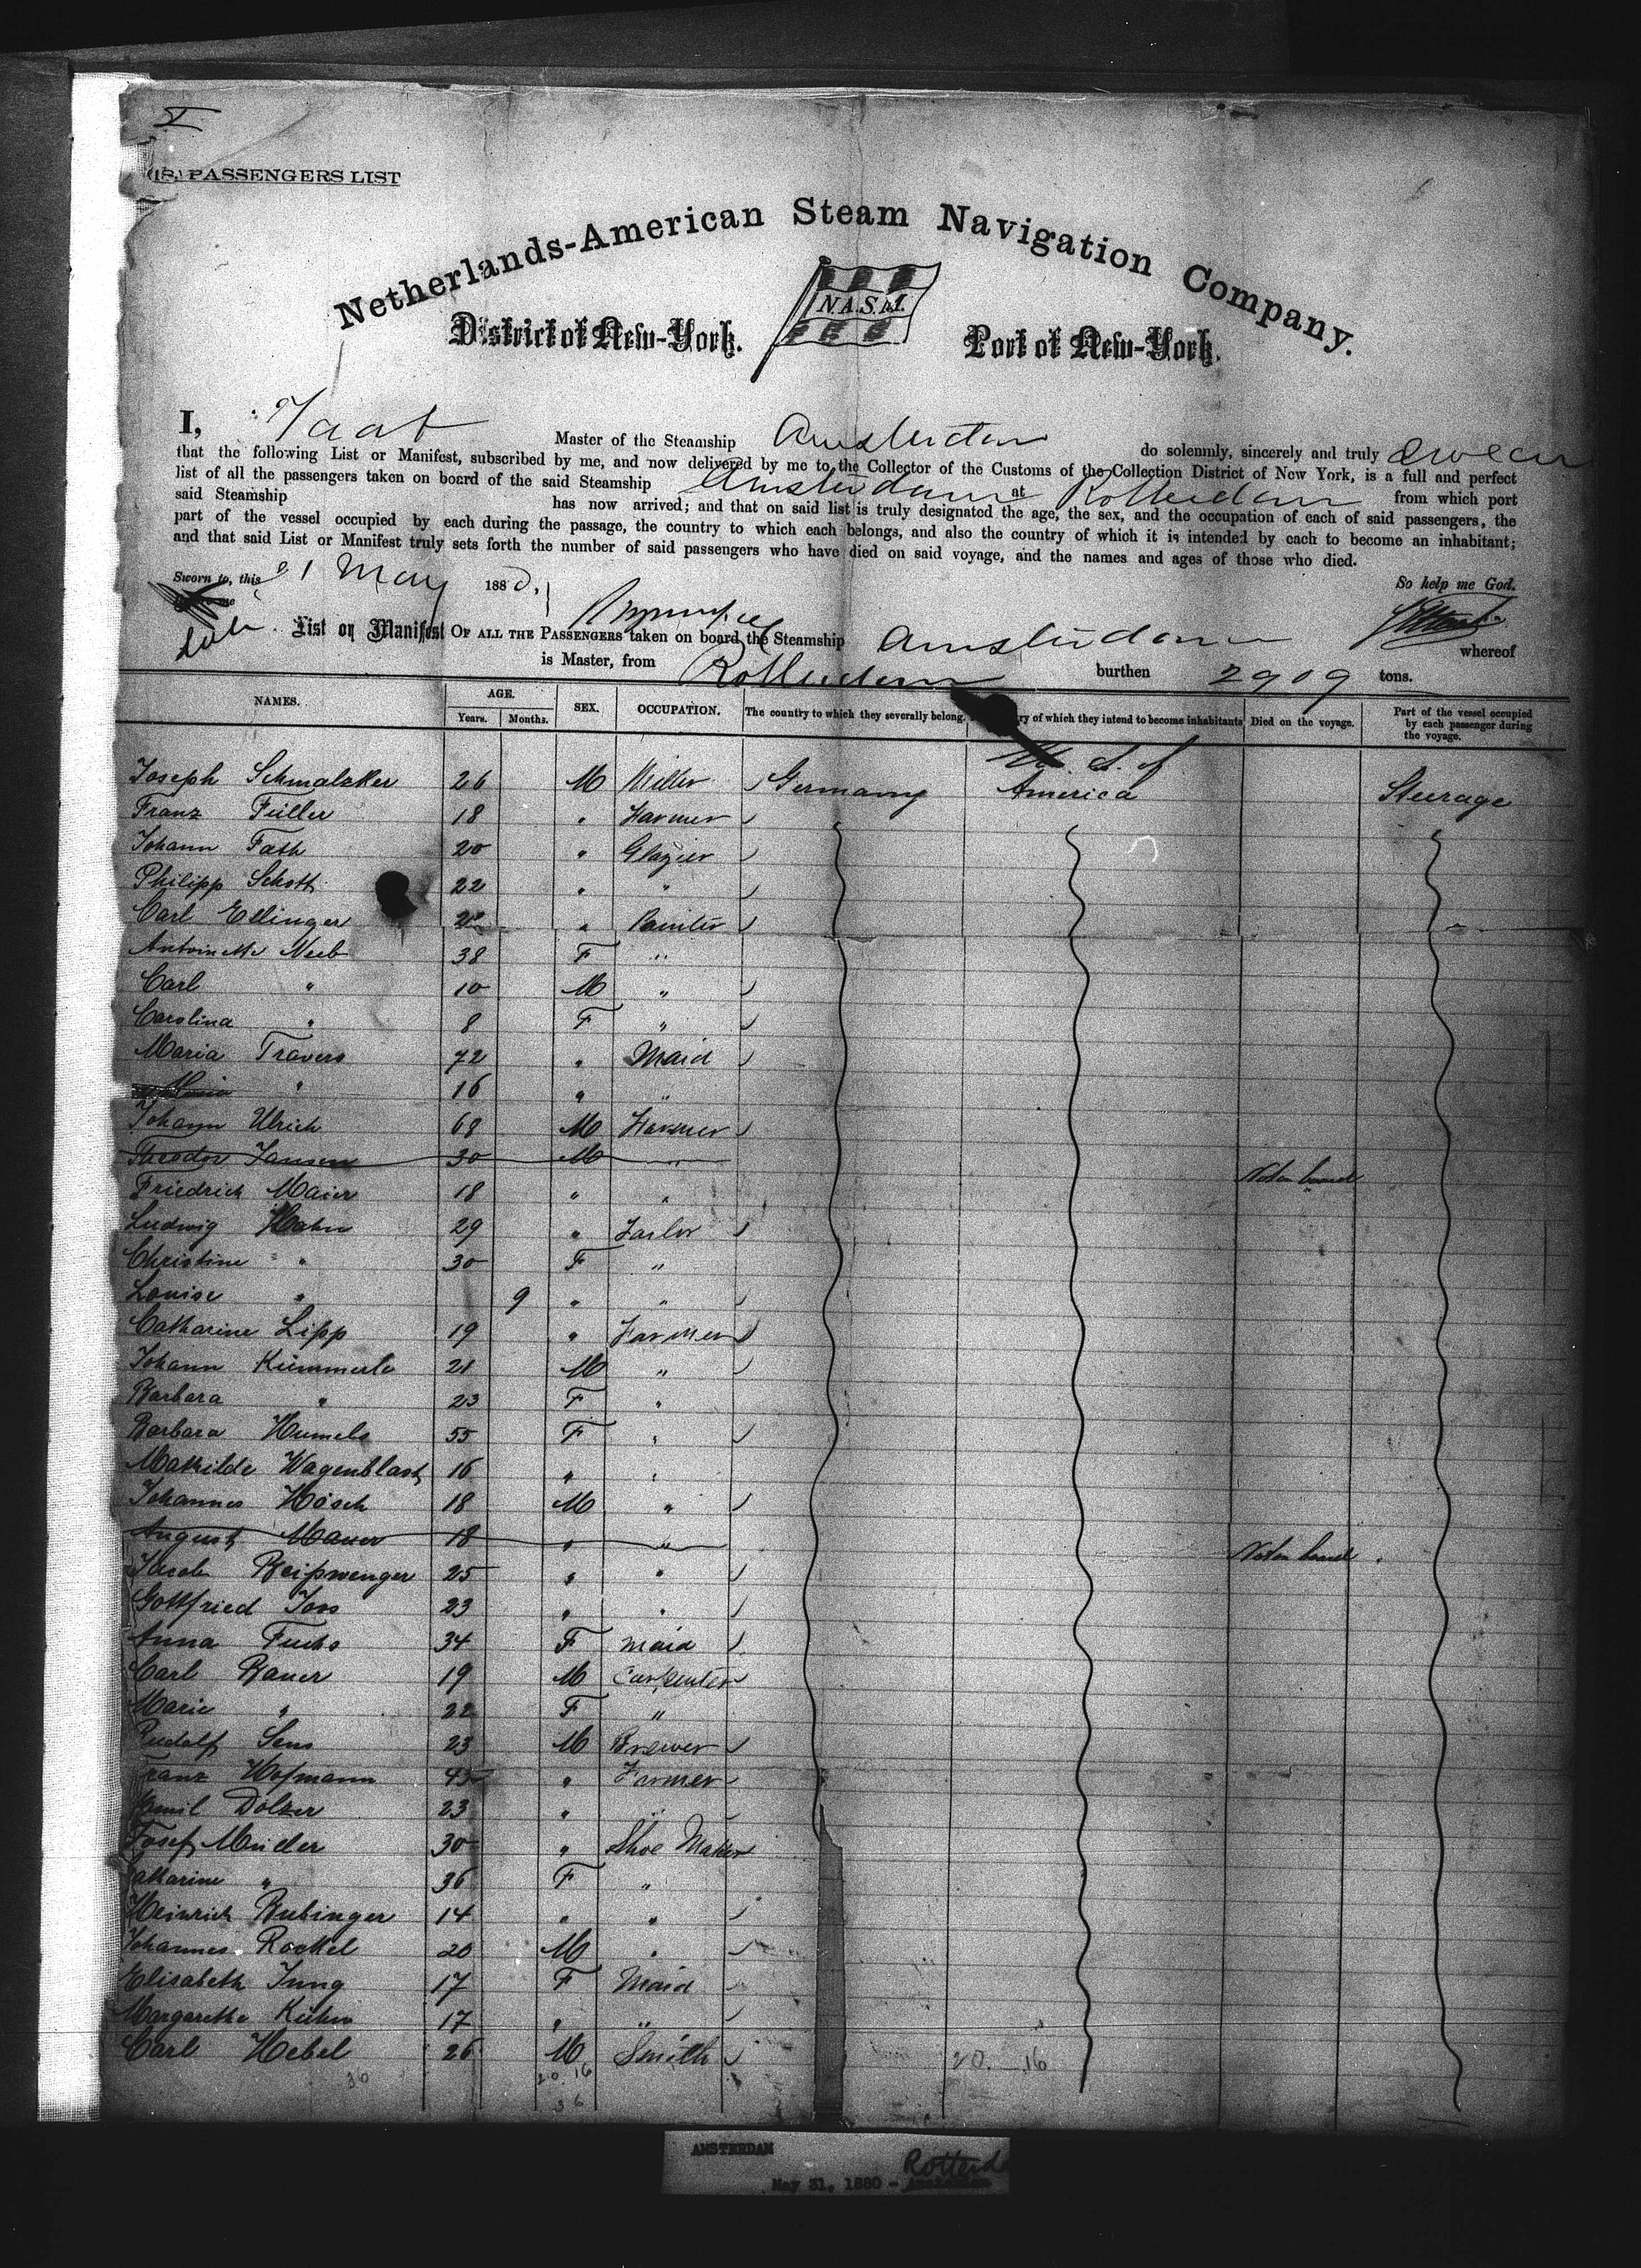 (18.) PASSENGERS LIST
Netherlands-American Steam Navigation Company.
N.A.S.M.
District of New-York. Port of New-York.
I, Taat Master of the Steamship Amsterdam do solemnly, sincerely and truly swear
that the following List or Manifest, subscribed by me, and now delivered by me to the Collector of the Customs of the Collection District of New York, is a full and perfect
list of all the passengers taken on board of the said Steamship Amsterdam at Rotterdam from which port
said Steamship has now arrived; and that on said list is truly designated the age, the sex, and the occupation of each of said passengers, the
part of the vessel occupied by each during the passage, the country to which each belongs, and also the country of which it is intended by each to become an inhabitant;
and that said List or Manifest truly sets forth the number of said passengers who have died on said voyage, and the names and ages of those who died.
Sworn to, this 31 May 1880. So help me God.
List or Manifest OF ALL THE PASSENGERS taken on board the Steamship Amsterdam whereof
is Master, from Rotterdam burthen 2909 tons.
NAMES. AGE. Years. Months. SEX. OCCUPATION. The country to which they severally belong. ry of which they intend to become inhabitants Died on the voyage. Part of the vessel occupied by each passenger during the voyage.
Joseph Schmalzker 26 M Miller Germany U. S. of America Steerage
Franz Füller 18 " Farmer
Johann Fath 20 " Glazier
Philipp Schott 22 " "
Carl Ellinger " Painter
Antoinette Neeb 38 F "
Carl " 10 M "
Carolina " 8 F "
Maria Travers 72 " Maid
" 16 " "
Johann Ulrich 68 M Farmer
Theodor Jansen 30 M " Not on board
Friedrich Maier 18 " "
Ludwig Hahn 29 " Tailor
Christine " 30 F "
Louise " 9 " "
Catharine Lipp 19 " Farmer
Johann Kümmerle 21 M "
Barbara " 23 F "
Barbara Humels 55 F "
Mathilde Wagenblast 16 " "
Johannes Hösch 18 M "
August Mauer 18 " " Not on board
Jacob Beisswenger 25 " "
Gottfried Joos 23 " "
Anna Fuchs 34 F Maid
Carl Bauer 19 M Carpenter
Marie " 22 F "
Rudolf Sens 23 M Brewer
Franz Hofmann 45 " Farmer
Emil Dolzer 23 " "
Josef Müller 30 " Shoe Maker
Katharine " 36 F "
Heinrich Bubinger 14 " "
Johannes Rockel 20 M "
Elisabeth Jung 17 F Maid
Margaretha Kühn 17 " "
Carl Hebel 26 M Smith
20. 16 20. 16
36 36
AMSTERDAM
May 31, 1880 - Rotterd